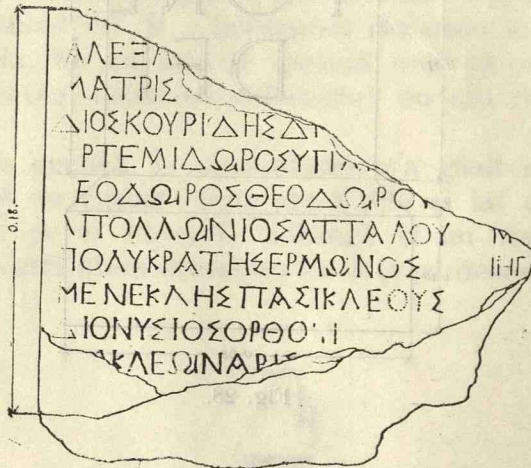 ΑΛΕΞ
ΜΑΤΡΙΣ
ΔΙΟΣΚΟΥΡΙΔΗΣΔΙ
ΡΤΕΜΙΔΩΡΟΣΥΠ
ΕΟΔΩΡΟΣΘΕΟΔΩΡΟΥ
ΑΠΟΛΛΩΝΙΟΣΑΤΤΑΛΟΥ
ΠΟΛΥΚΡΑΤΗΣΕΡΜΩΝΟΣ
ΜΕΝΕΚΛΗΣΠΑΣΙΚΛΕΟΥΣ
ΔΙΟΝΥΣΙΟΣΟΡΘΟ
ΚΛΕΩΝΑΡΙΣ
0.18.